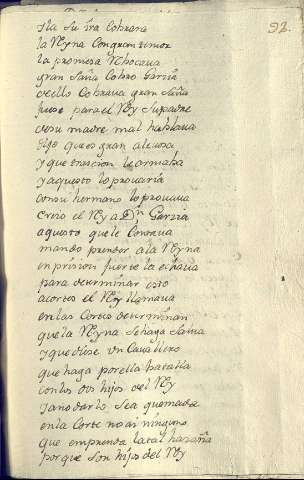 92.
y la su ira Cobrara
la Reyna Con gran temor
la promesa Rebocava
gran Saña Cobro Garcia
de ello Cobrava gran Saña
fuese para el Rey Su padre
de su madre mal hablava
dijo que es gran alevosa
y que traicion le armaba
y aquesto lo provaria
con su hermano lo provava
Creio el Rey a Dn Garzia
aquesto que le Contava
mando prender a la Reyna
en prision fuerte la echava
para determinar esto
a cortes el Rey llamava
en las Cortes determinan
que la Reyna Sehaga Salva
y que diese Un Cavallero
que haga por ella batalla
con los dos hijos del Rey
y a no darlo Sea quemada
en la Corte no ai ninguno
que emprenda la tal hazaña
porque Son hijos del Rey